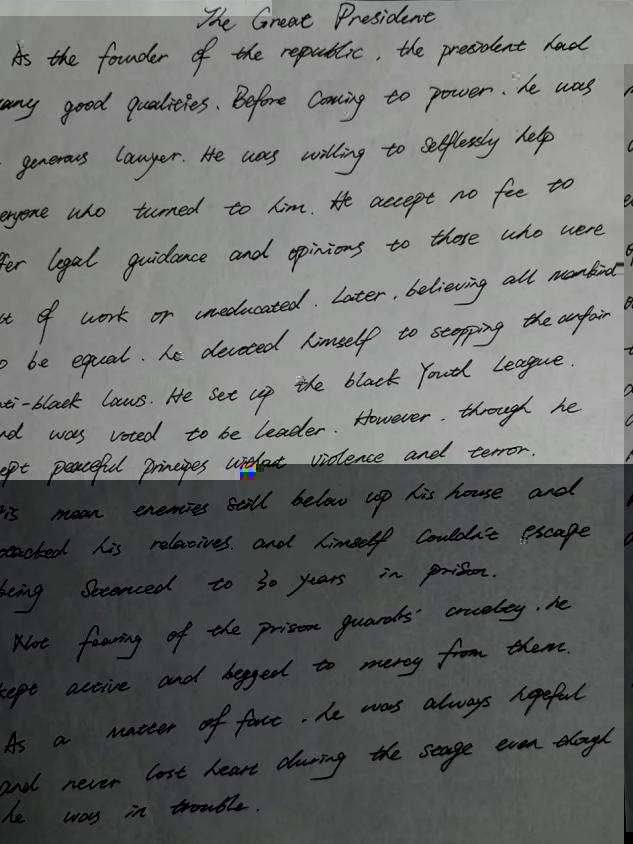 The Great President
As the founder of the republic, the president had
many good qualities. Before Coming to power, he was
generous lawyer. He was willing to selflessly help
eryone who turned to him. He accept no fee to
fer legal guidance and opinions to those who were
ut of work or uneducated. Later, believing all mankind
o be equal. he devoted himself to stopping the unfair
nti-black laws. He set up the black Youth League.
nd was voted to be leader. However, through he
ept peaceful principes without violence and terror.
is mean enemies still below up his house and
attacked his relatives. and himself Couldn't escape
being Setenced to 30 years in prison.
Not fearing of the prison guards' cruelty, he
kept active and begged to mercy from them.
As a matter of fact, he was always hopeful
and never lost heart during the stage even though
he was in trouble.